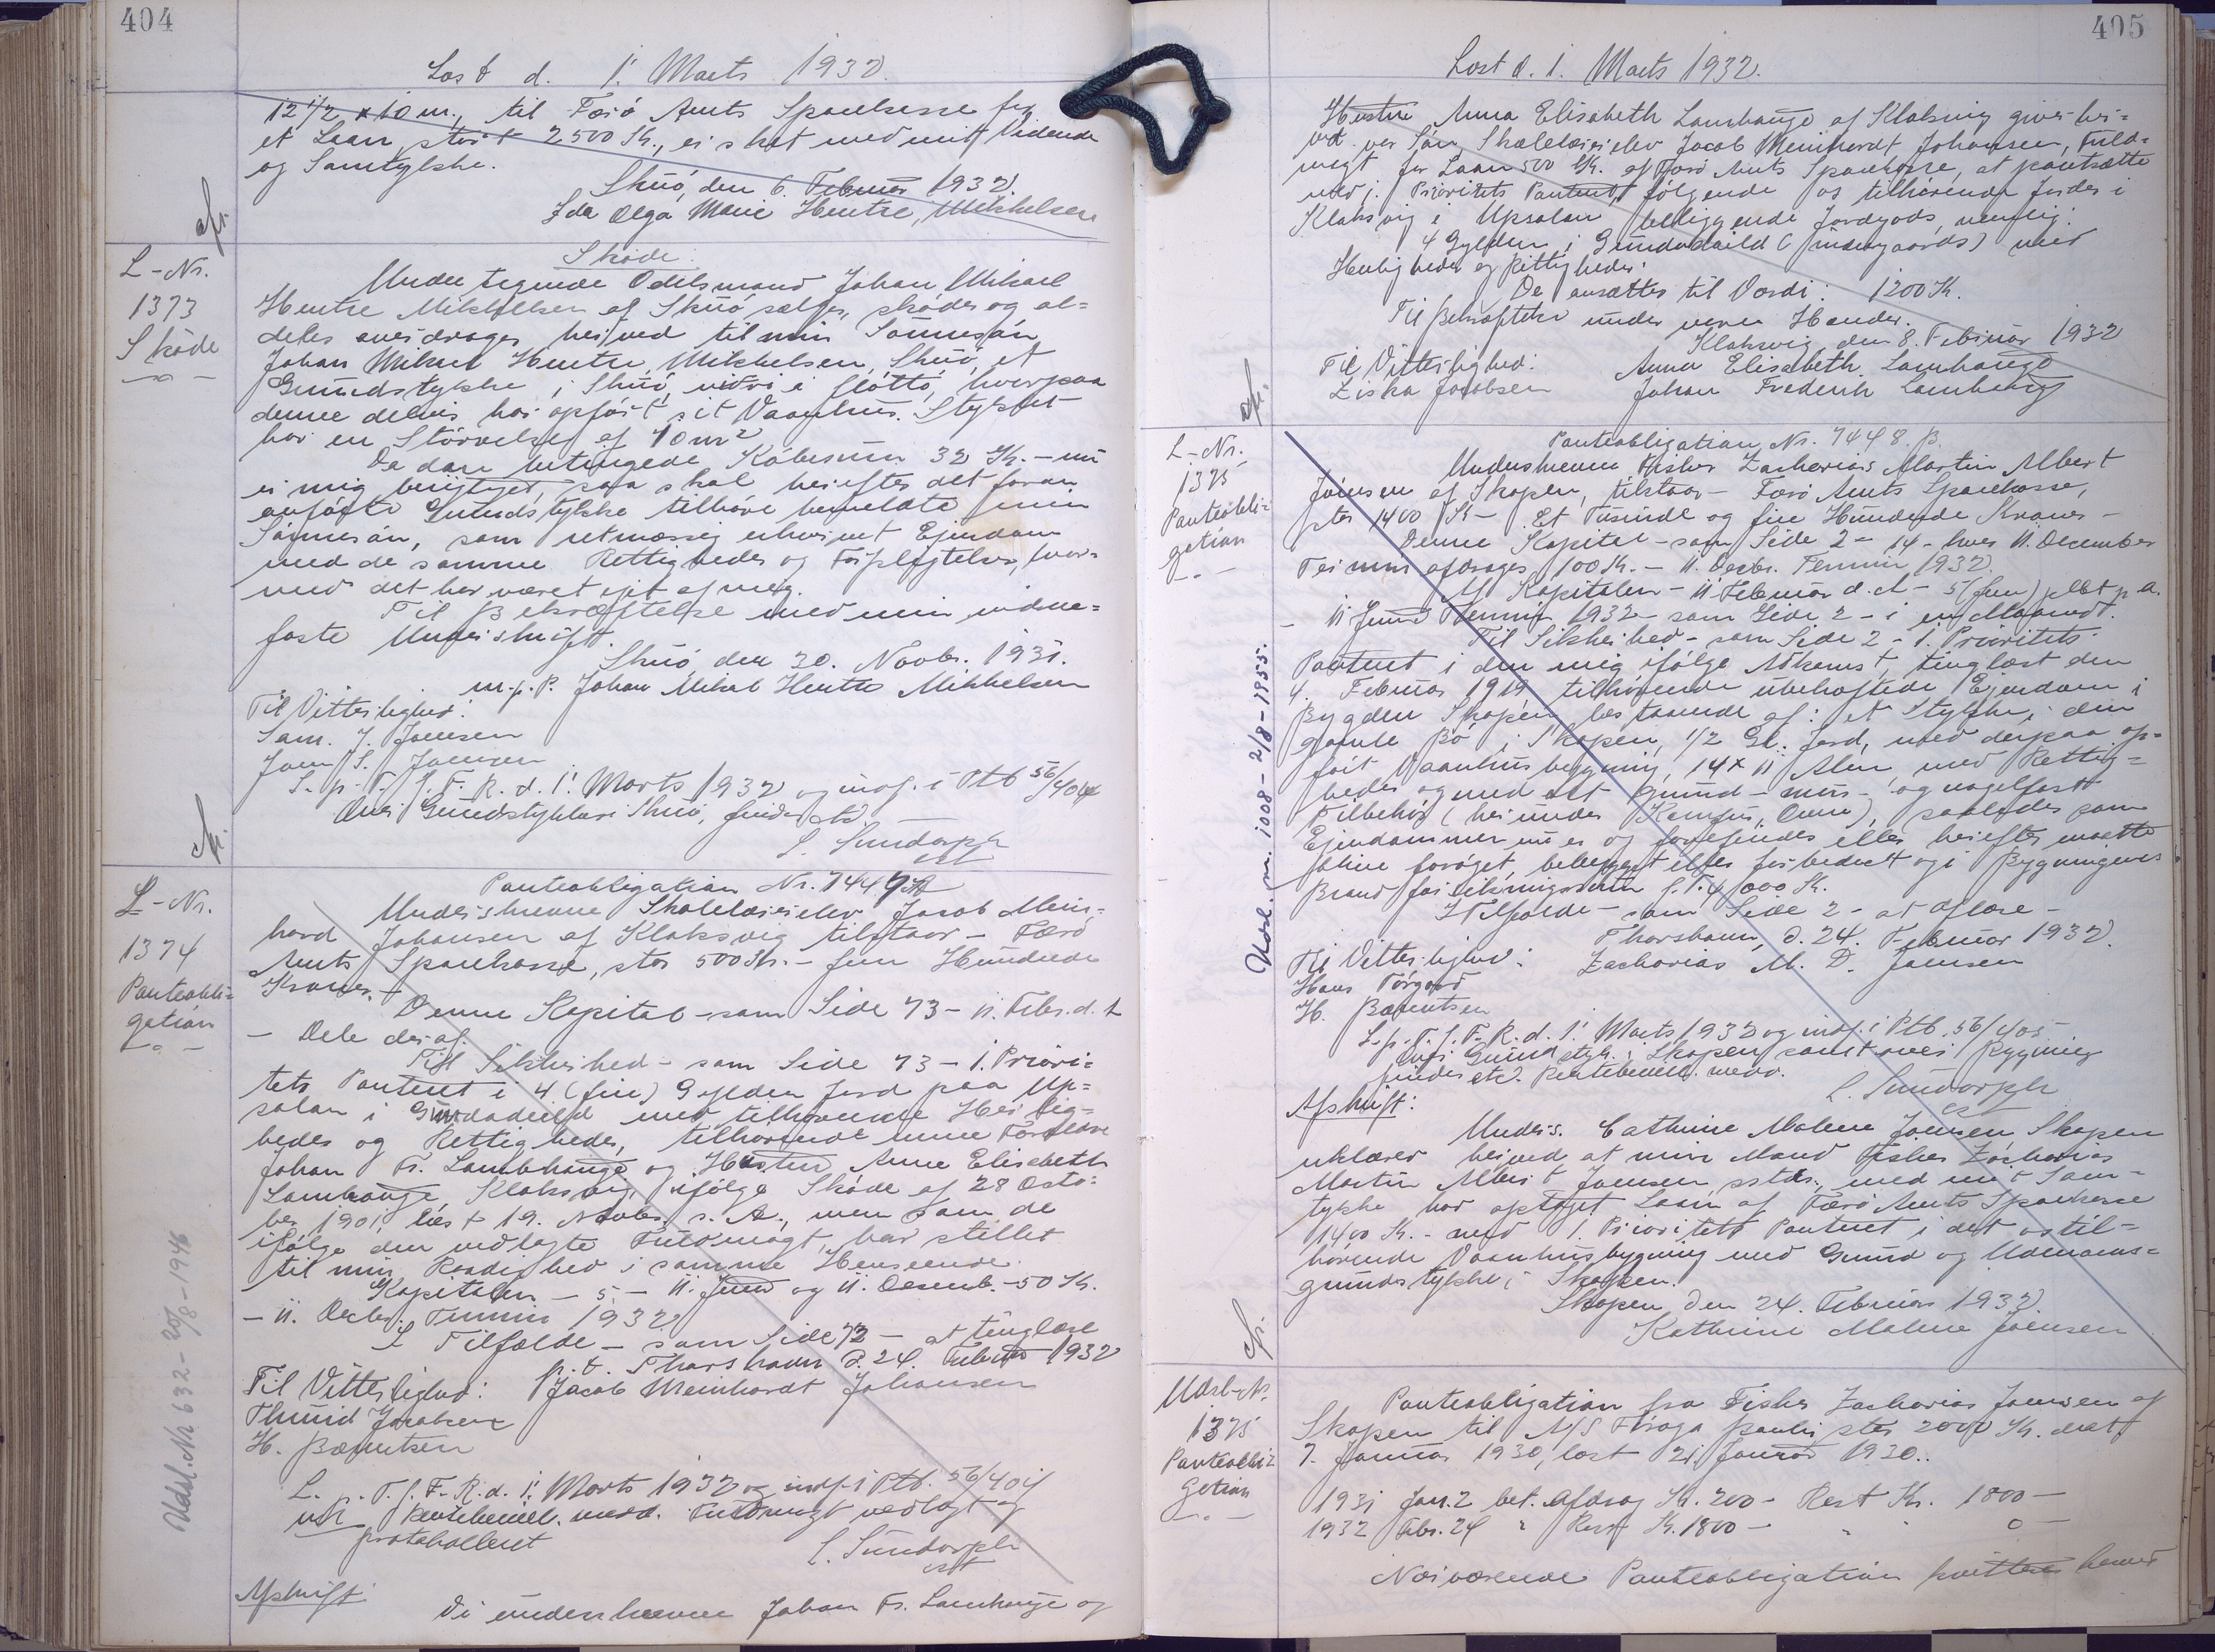 404
Læst d. 1' Marts 1932.
12 1/2 x 10 m., til Færø Amts Sparekasse for
et Laan, stort 2500 Kr., er sket med mit Vidende
og Samtykke.
Skuø, den 6. Februar 1932.
Ida Olga Marie Hentze, Mikkelsen
afs.
L-Nr.
1373
Skøde
Skøde.
Undertegnede Odelsmand Johan Mikael
Hentze Mikkelsen af Skuø sælger, skøder og al-
deles overdrager herved til min Sønnesøn
Johan Mikael Hentze Mikkelsen, Skuø, et
Grundstykke i Skuø, hvorpaa
denne delvis har opført sit Vaanhus. Stykket
har en Størrelse af 40 m2
Da den betingede Købesum 32 Kr. – nu
er mig berigtiget, saa skal herefter det foran
anførte Grundstykke tilhøre bemeldte min
Sønnesøn, som retmæssig erhvervet Ejendom
med de samme Rettigheder og Forpligtelser, hvor-
med det har været ejet af mig.
Til Bekræftelse med min vidne-
faste Underskrift.
Skuø, den 30. Novbr. 1931.
m. f. P. Johan Mikal Hentze Mikkelsen
Til Vitterlighed:
Sam. J. Joensen
Joen S. Joensen
L. p. T. f. F. R. d. 1' Marts 1932 og indf. i Ptb 56/404
Over Grundstykker i Skuø, findes etc.
L. Sundorph
cst
afs.
L-Nr.
1374
Panteobli-
gation
Panteobligation Nr. 7447 A
Underskrevne Skolelærerelev Jacob Mein-
hard Johansen af Klaksvig tilstaar – Færø
Amts Sparekasse, stor 500 Kr. – fem Hundrede
Kroner. –
Denne Kapital – som Side 73 – 11. Febr. d. A
– Dele deraf.
Til Sikkerhed – som Side 73 – 1. Priori-
tets Panteret i 4 (fire) Gylden Jord paa Up-
salan i Gerdadeild med tilhørende Herlig-
heder og Rettigheder, tilhørende mine Forældre
Johan Fr. Lamhauge og Hustru Anna Elisabeth
Lamhauge, Klaksvig, ifølge Skøde af 28 Octo-
ber 1901, læst 19. Novbr. s. A., men som de
ifølge den vedlagte Fuldmagt, har stillet
til min Raadighed i samme Henseende.
Kapitalen – 5 – 11. Juni og 11. Decemb. – 50 Kr.
– 11. Decbr. Termin 1932
I Tilfælde – som Side 73 – at tinglæse
p. t. Thorshavn d. 24. Februar 1932
Til Vitterlighed: Jacob Meinhardt Johansen
Thurid Jacobsen
H. Bærentsen
L. p. T. f. F. R. d. 1' Marts 1932 og indf. i Ptb. 56/404
Rentebevill. medd. Fuldmagt vedlagt og
protokolleret
L. Sundorph
cst
Udsl. Nr 632 – 20/8 – 1946
Afskrift:
Vi underskrevne Johan Fr. Lamhauge og
405
Læst d. 1. Marts 1932.
Hustru Anna Elisabeth Lamhauge af Klaksvig giver her-
ved vor Søn, Skolelærerelev Jacob Meinhardt Johansen, Fuld-
magt for Laan 500 Kr. af Færø Amts Sparekasse, at pantsætte
med 1. Prioritets Panteret, følgende os tilhørende Jorder i
Klaksvig i Upsalan beliggende Jordgods, nemlig:
4 Gylden i Gerdadeild (indengaards) med
Herligheder og Rettigheder.
De ansættes til Værdi: 1200 Kr.
Til Bekræftelse under vores Hænder.
Klaksvig, den 8. Februar 1932
Til Vitterlighed: Anna Elisabeth Lamhauge
Ziska Jacobsen Johan Frederik Lamhauge
afs.
L-Nr.
1375
Panteobli-
gation
Panteobligation Nr. 7448. B.
Underskrevne Fisker Zacharias Martin Albert
Joensen af Skopen, tilstaar – Færø Amts Sparekasse,
stor 1400 Kr – Et Tusinde og fire Hundrede Kroner –
Denne Kapital – som Side 2 – 14 – hver 11. December
Termin afdrages 100 Kr. – 11. Decbr. Termin 1932.
Af Kapitalen – 11 Februar d. A – 5 (fem) pCt p. a.
– 11 Juni Termin 1932 – som Side 2 – i en Maaned.
Til Sikkerhed – som Side 2 – 1. Prioritets
Panteret i den mig ifølge Adkomst, tinglæst den
4. Februar 1919 tilhørende ubehæftede Ejendom i
Bygden Skopen, bestaaende af: et Stykke i den
gamle Bø i Skopen, 1/2 Gl. Jord, med derpaa op-
ført Vaanhusbygning, 14 x 11 Alen, med Rettig-
heder og med alt grund – mur – og nagelfast
Tilbehør (herunder Komfur, Ovne), saaledes som
Ejendommen nu er og forefindes eller herefter maatte
blive forøget, bebygget eller forbedret og i Bygningens
Brandforsikringssum f. T. 4000 Kr.
I Tilfælde – som Side 2 – at aflæse –
Thorshavn, d. 24. Februar 1932.
Til Vitterlighed: Zacharias M. A. Joensen
Hans Tórgarð
H. Bærentsen
L. p. T. f. F. R. d. 1' Marts 1932 og indf. i Ptb. 56/405 –
Over Grundstyk. i Skopen samt over Bygning
findes etc. Rentebevill. medd.
L. Sundorph
cst
Udsl. nr. 1008 – 2/8 – 1955.
Afskrift:
Unders. Cathrine Malene Joensen, Skopen
erklærer herved at min Mand Fisker Zacharias
Martin Albert Joensen sstds., med mit Sam-
tykke har optaget Laan af Færø Amts Sparekasse
1400 Kr. – med 1. Prioritets Panteret i det os til-
hørende Vaanhusbygning med Grund og Udmarks-
grundstykke i Skopen.
Skopen, den 24. Februar 1932.
Kathrine Malene Joensen
afs.
Udsl-Nr.
1375
Panteobli-
gation
Panteobligation fra Fisker Zacharias Joensen af
Skopen til A/S stor 2000 Kr. dat.
7. Januar 1930, læst 21 Januar 1930..
1931 Jan. 2 bet. Afdrag Kr. 200 – Rest Kr. 1800 –
1932 Febr. 24 " Rest Kr. 1800 – " " 0 –
Nærværende Panteobligation kvitteres herved